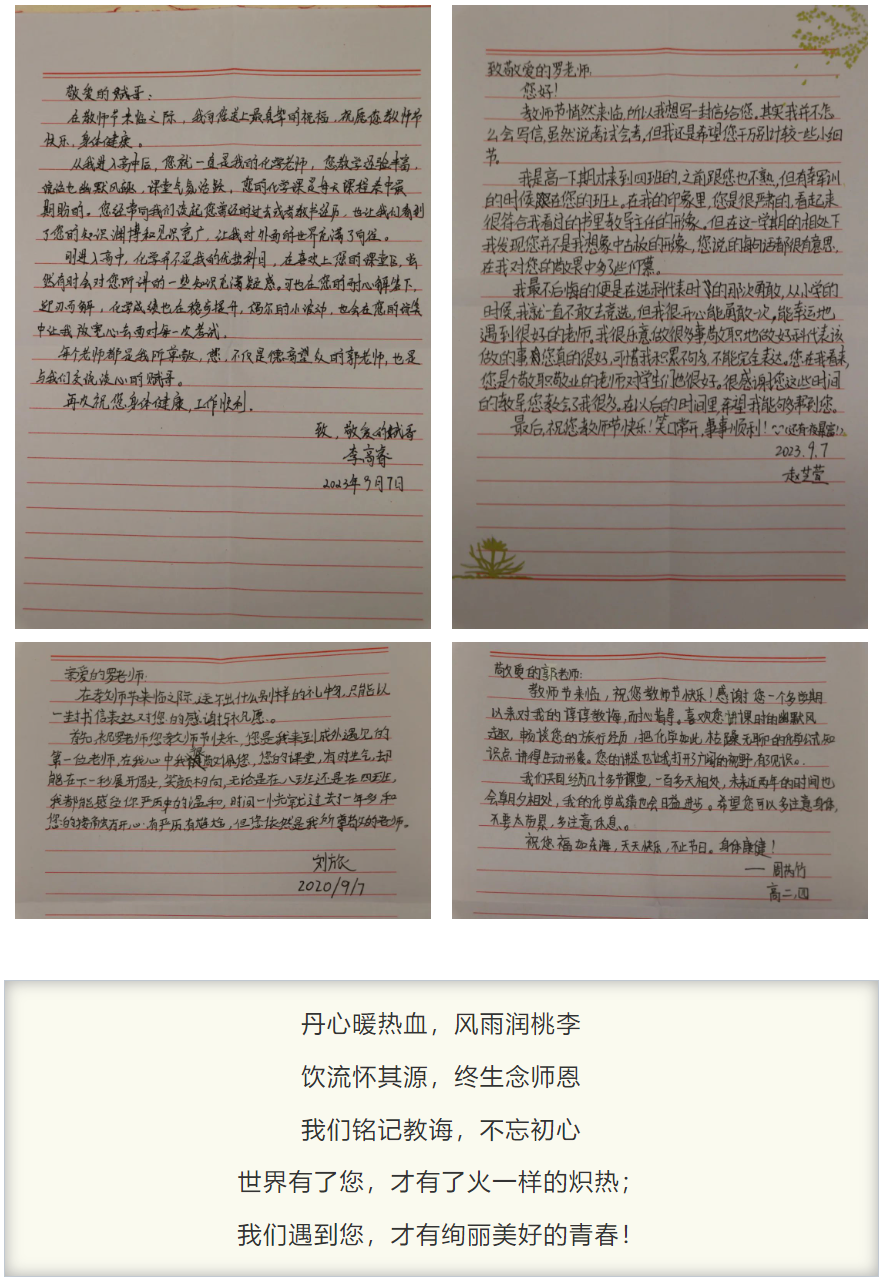 敬爱的斌哥：
在教师节来临之际，我向您送上最真挚的祝福，祝愿您教师节
快乐，身体健康。
从我进入高中后，您就一直是我的化学老师，您教学经验丰富，
说话也幽默风趣，课堂气氛活跃，您的化学课是每天课程表中最
期盼的。您经常向我们谈起您曾经的过去或者教书经历，也让我们看到
了您的知识渊博和见识宽广，让我对外面的世界充满了向往。
刚进入高中，化学并不是我的优势科目，在喜欢上您的课堂后，当
然有时会对您所讲的一些知识充满疑惑。可也在您的耐心解答下，
迎刃而解，化学成绩也在稳步提升，偶尔的小波动，也会在您的
中让我放宽心去面对每一次考试。
每个老师都是我所尊敬，您，不仅是德高望众的郭老师，也是
与我们交流谈心的斌哥。
再次祝您身体健康，工作顺利。
致，敬爱的斌哥
李高睿
2023年9月7日
致敬爱的罗老师：
您好！
教师节悄然来临，所以我想写一封信给您。其实我并不怎
么会写信，虽然说考试会考，但我还是希望您千万别计较一些小细
节。
我是高一下期才来到四班的，之前跟您也不熟，但有幸军训
的时候在您的班上。在我的印象里，您是很严肃的，看起来
很符合我看过的书里教导主任的形象。但在这一学期的相处下
我发现您并不是我想象中古板的形象，您说的每句话都很有意思，
在我对您的敬畏中多了些仰慕。
我最不后悔的便是在选科代表时的那次勇敢，从小学的
时候，我就一直不敢去竞选，但我很开心能勇敢一次，能幸运地
遇到很好的老师。我很乐意做很多事，敬职地做好科代表该
做的事，您真的很好，可惜我积累不够多，不能完全表达。您在我看来，
您是个敬职敬业的老师，对学生们也很好。很感谢您这些时间
的教导，您教会了我很多。在以后的时间里，希望我能够帮到您。
最后，祝您教师节快乐！笑口常开，事事顺利！(还有夜暴富!)
2023.9.7
赵芷萱
亲爱的罗老师：
在教师节来临之际，送不出什么别样的礼物，只能以
一封书信表达对您的感谢和祝愿。
首先，祝罗老师您教师节快乐，您是我来到成外遇见的
第一位老师，在我心中我最敬佩您，您的课堂，有时生气，却
能在下一秒展开眉头，笑颜相向，无论是在八班还是在四班，
我都能感受您严厉中的温和，时间一恍就过去了一年多和
您的接触有开心有严厉有尴尬，但您依然是我所尊敬的老师。
刘旅
2020/9/7
敬爱的郭老师：
教师节来临，祝您教师节快乐！感谢您一个多学期
以来对我的谆谆教诲，耐心指导。喜欢您讲课时的幽默风
趣，畅谈您的旅行经历，把化学如此枯燥无聊的化学公式知
识点讲得生动形象。您的讲述也让我打开了广阔的视野，有见识。
我们共同经历几十多节课堂，一百多天相处，未来近两年的时间也
会朝夕相处，我的化学成绩也会日益进步。希望您可以多注意身体，
不要太劳累，多注意休息。
祝您福如东海，天天快乐，不止节日。身体康健！
— 周芮竹
高二.四
丹心暖热血，风雨润桃李
饮流怀其源，终生念师恩
我们铭记教诲，不忘初心
世界有了您，才有了火一样的炽热；
我们遇到您，才有绚丽美好的青春！